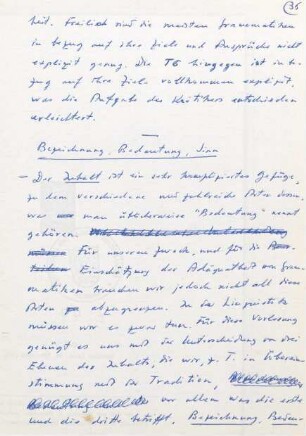 36
heit. Freilich sind die meisten Grammatiken
in bezug auf ihre Ziele und Ansprüche nicht
explizit genug. Die TG hingegen ist in be-
zug auf ihre Ziele vollkommen explizit,
was die Aufgabe des Kritikers entschieden
erleichtert.
Bezeichnung, Bedeutung, Sinn
- Der Inhalt ist ein sehr kompliziertes Gefüge,
zu dem verschiedene und zahlreiche Arten davon,
was man üblicherweise "Bedeutung" nennt
gehören.
Für unseren Zweck, und für die
Einschätzung der Adäquatheit von Gram-
matiken brauchen wir jedoch nicht all diese
Arten abzugrenzen. In der Linguistik
müssen wir es zwar tun. Für diese Vorlesung
genügt es uns mit der Unterscheidung von drei
Ebenen des Inhalts, die wir, z. T. in Überein-
stimmung mit der Tradition,
vor allem was die erste
und die dritte betrifft, Bezeichnung, Bedeu-